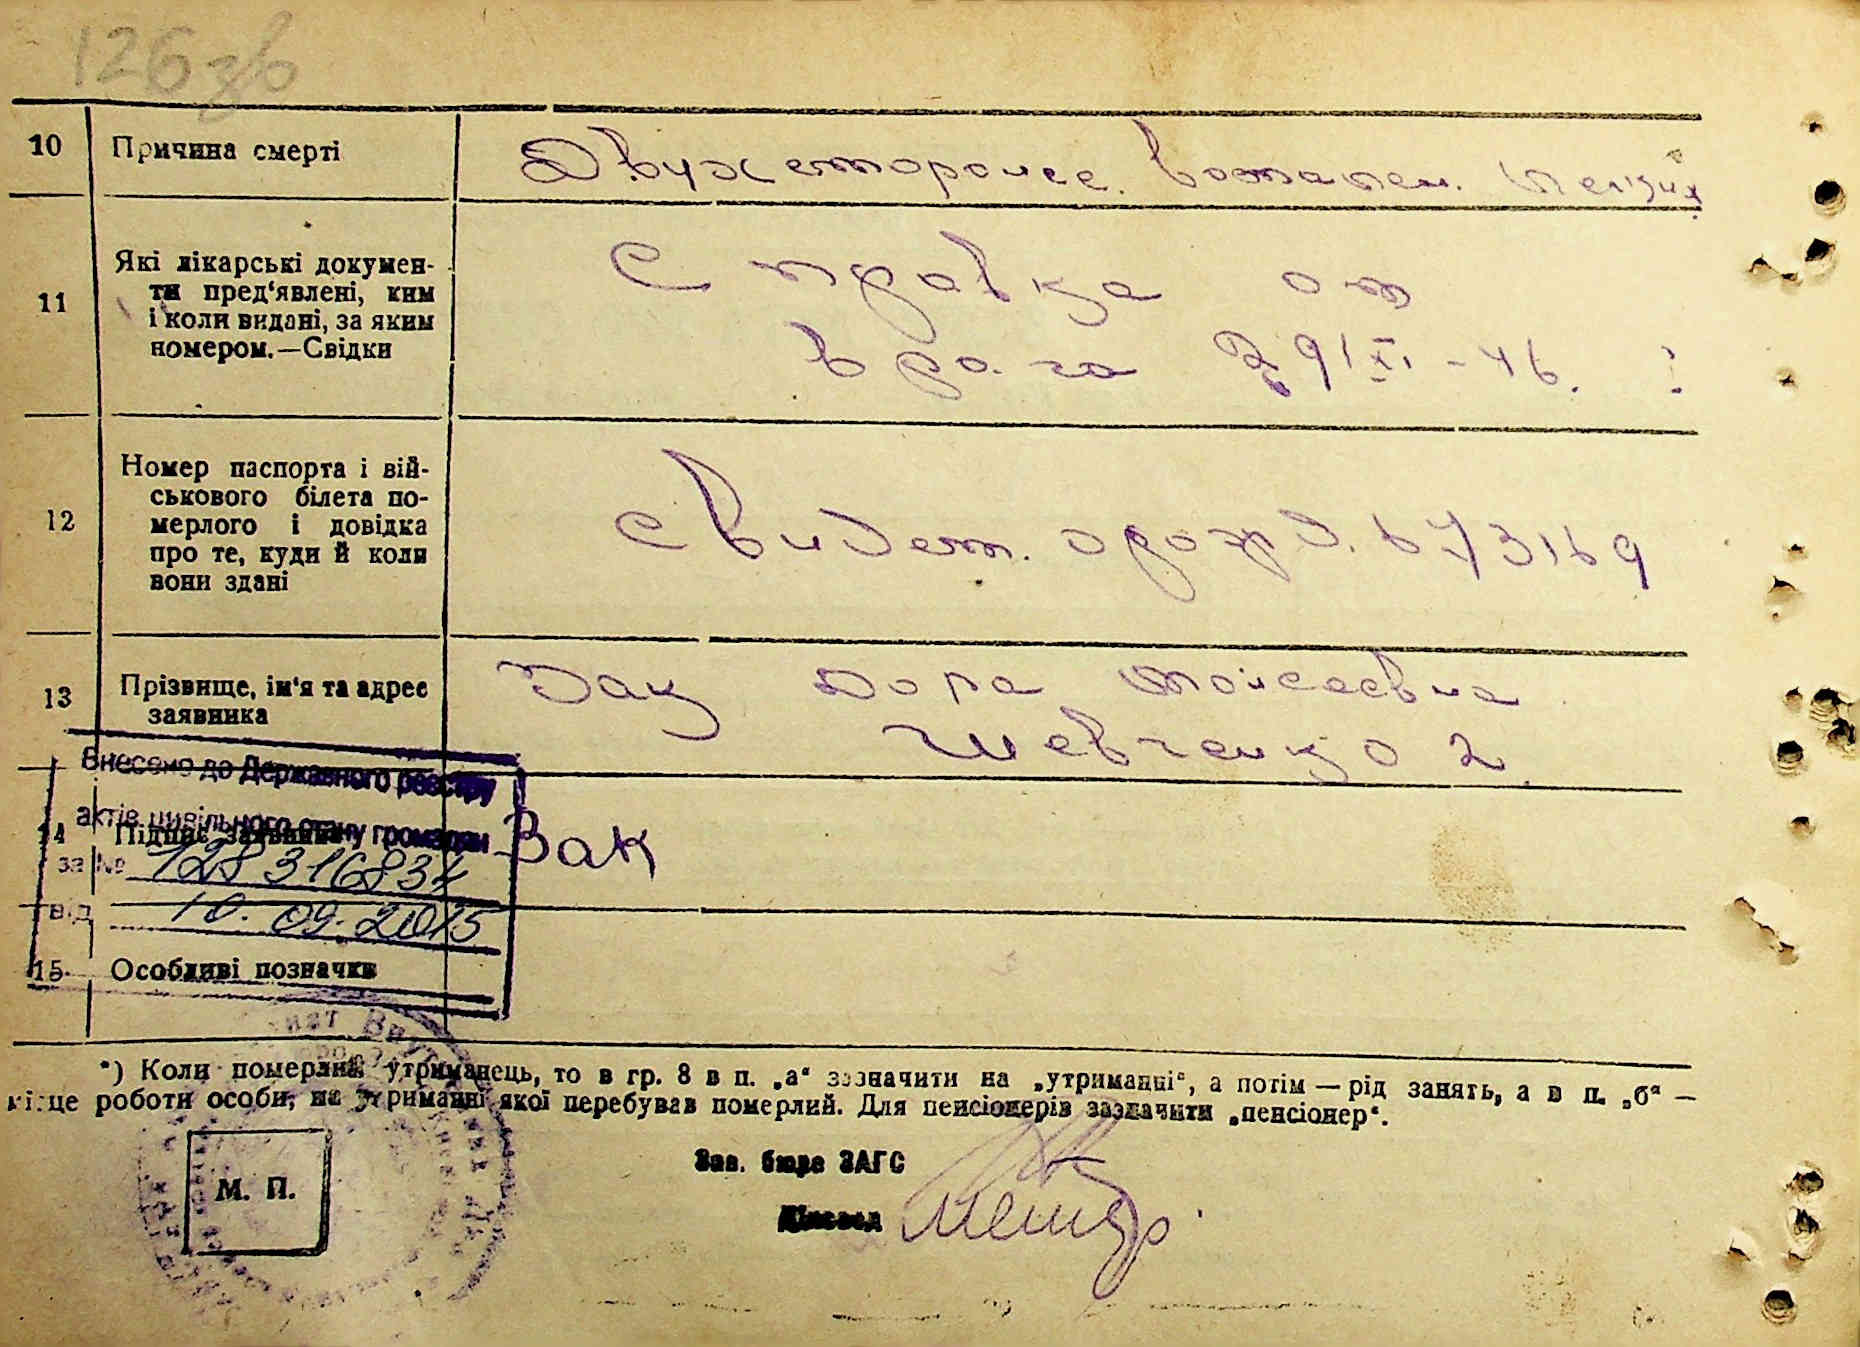 126 зв
10 Причина смерті Двухсторонее. воспален. легких
11 Які лікарські докумен-
ти пред‘явлені, ким
і коли видані, за яким
номером.—Свідки
Справка от
врача 29/XI - 46.
12 Номер паспорта і вій-
ськового білета по-
мерлого і довідка
про те, куди й коли
вони здані
Свидет. о рожд. 673169
13 Прізвище, ім‘я та адрес
заявника
Зак Дора Мойсеевна
Шевченко 2
Внесено до Державного реєстру
актів цивільного стану громадян
14 Підпис заявника Зак
за № 128316834
від 10.09.2015
15 Особливі позначки
*) Коли померлий утриманець, то в гр. 8 в п. „а“ зазначити на „утриманні“, а потім — рід занять, а в п. „б“ —
місце роботи особи, на утриманні якої перебував померлий. Для пенсіонерів зазначити „пенсіонер“.
Зав. бюро ЗАГС
М. П.
Діловод